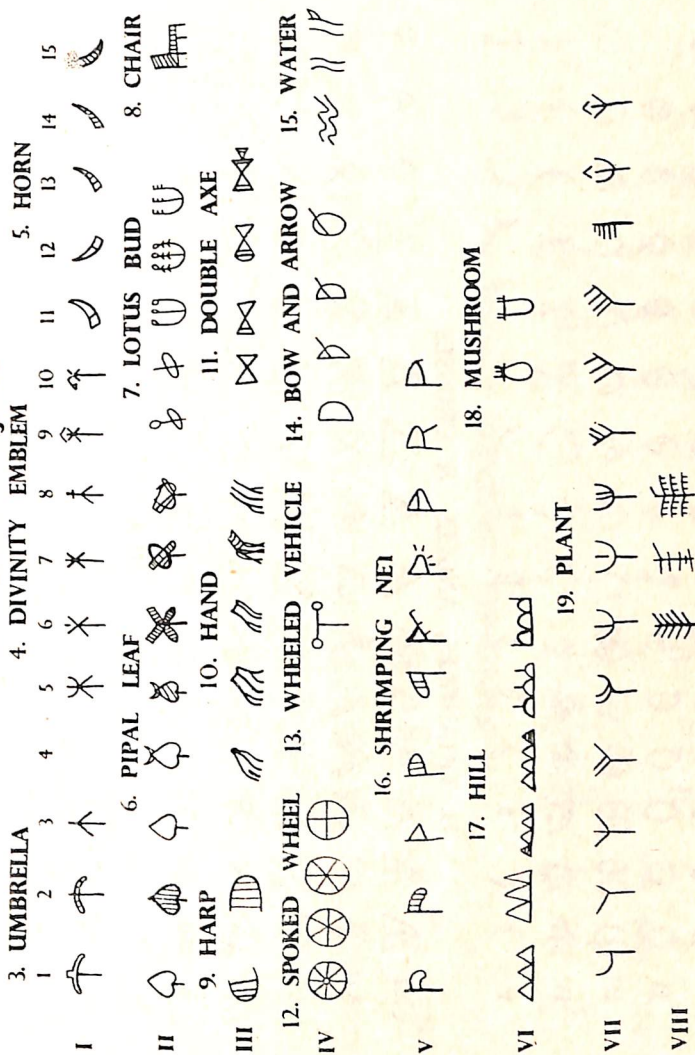 3. UMBRELLA 4. DIVINITY EMBLEM 5. HORN
1 2 3 4 5 6 7 8 9 10 11 12 13 14 15
I
6. PIPAL LEAF 7. LOTUS BUD 8. CHAIR
II
9. HARP 10. HAND 11. DOUBLE AXE
III
12. SPOKED WHEEL 13. WHEELED VEHICLE 14. BOW AND ARROW 15. WATER
IV
16. SHRIMPING NET
V
17. HILL 18. MUSHROOM
VI
19. PLANT
VII
VIII